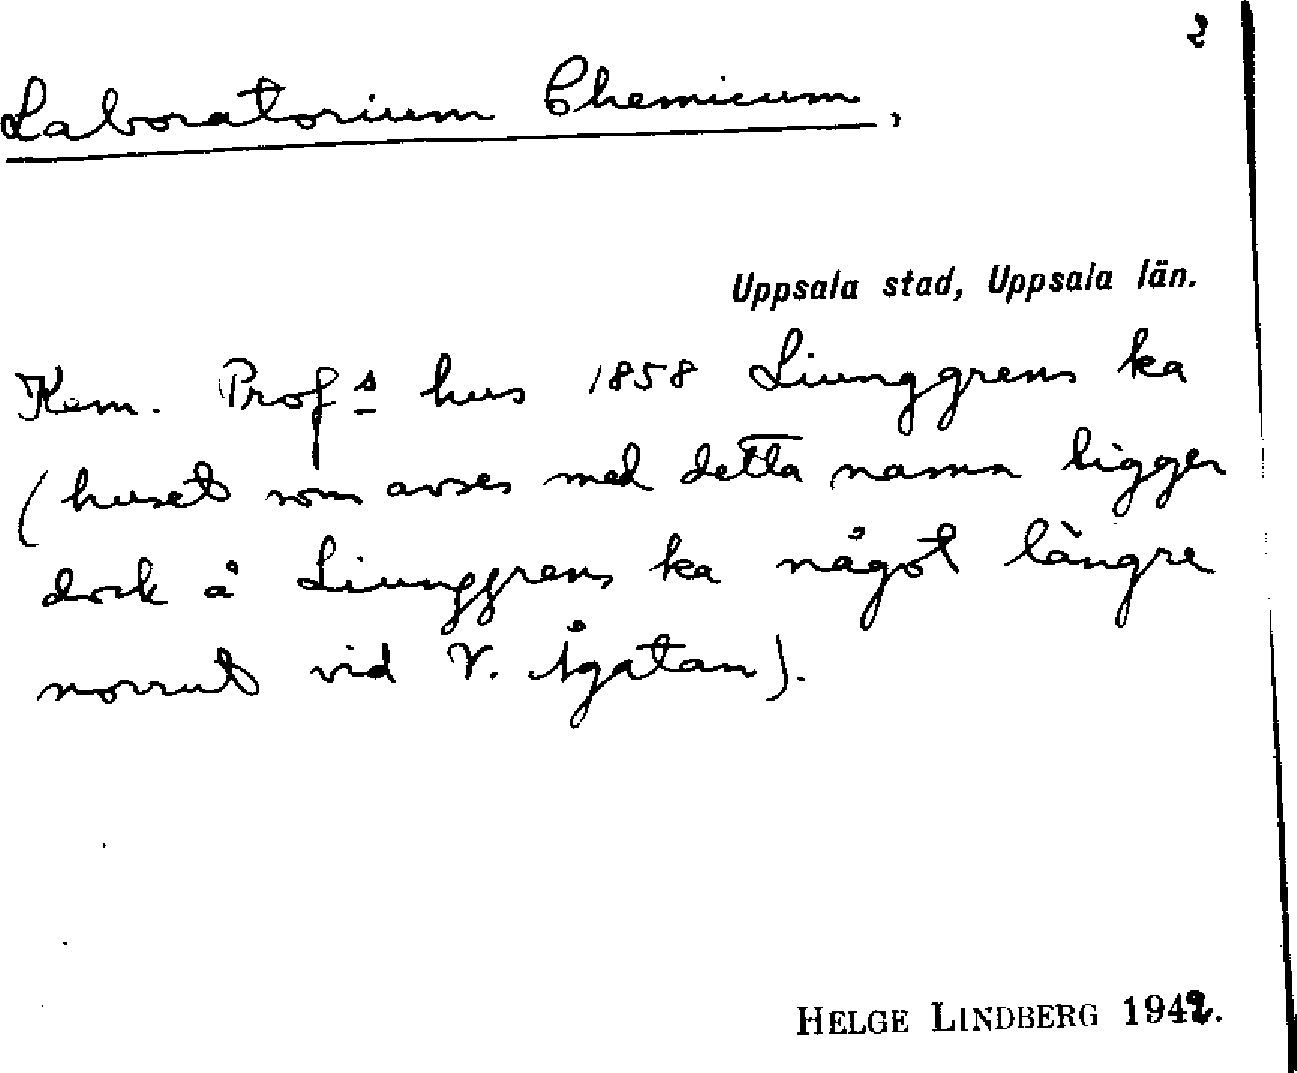 2
Laboratorium Chemicum,
Uppsala stad, Uppsala län.
Kem. Prof s hus 1858 Liunggrens ka
(huset som avses med detta namn ligger
dock å Liunggrens ka något längre
norrut vid V. Ågatan).
HELGE LINDBERG 1942.